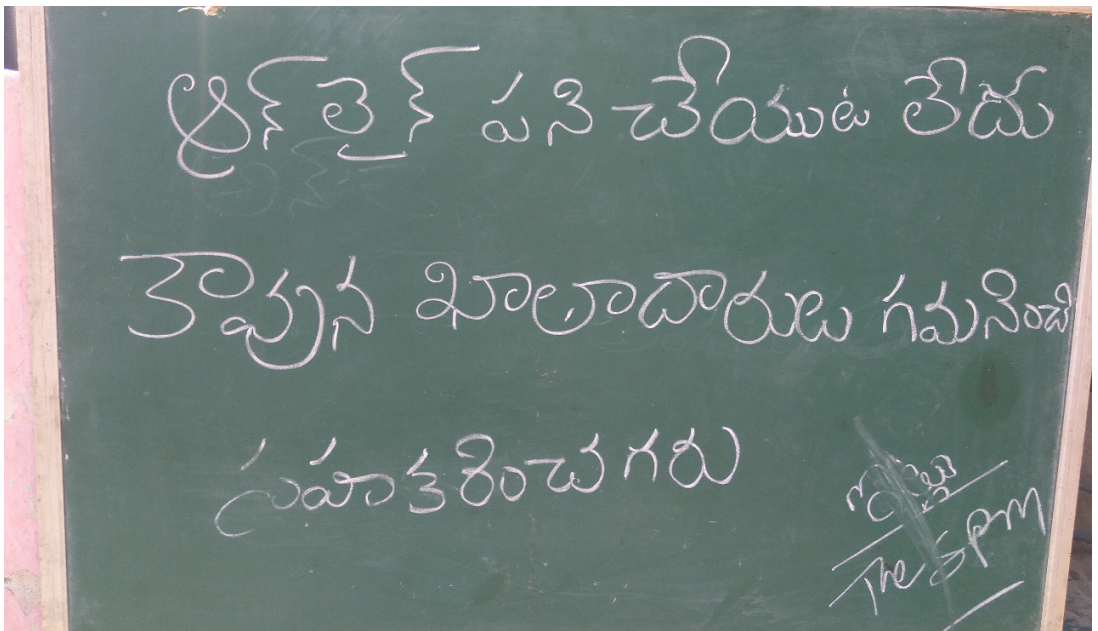 ఆన్ లైన్ పని చేయుట లేదు
కావున ఖాతాదారులు గమనించి
సహకరించగరు
ఇట్లు
The BPM